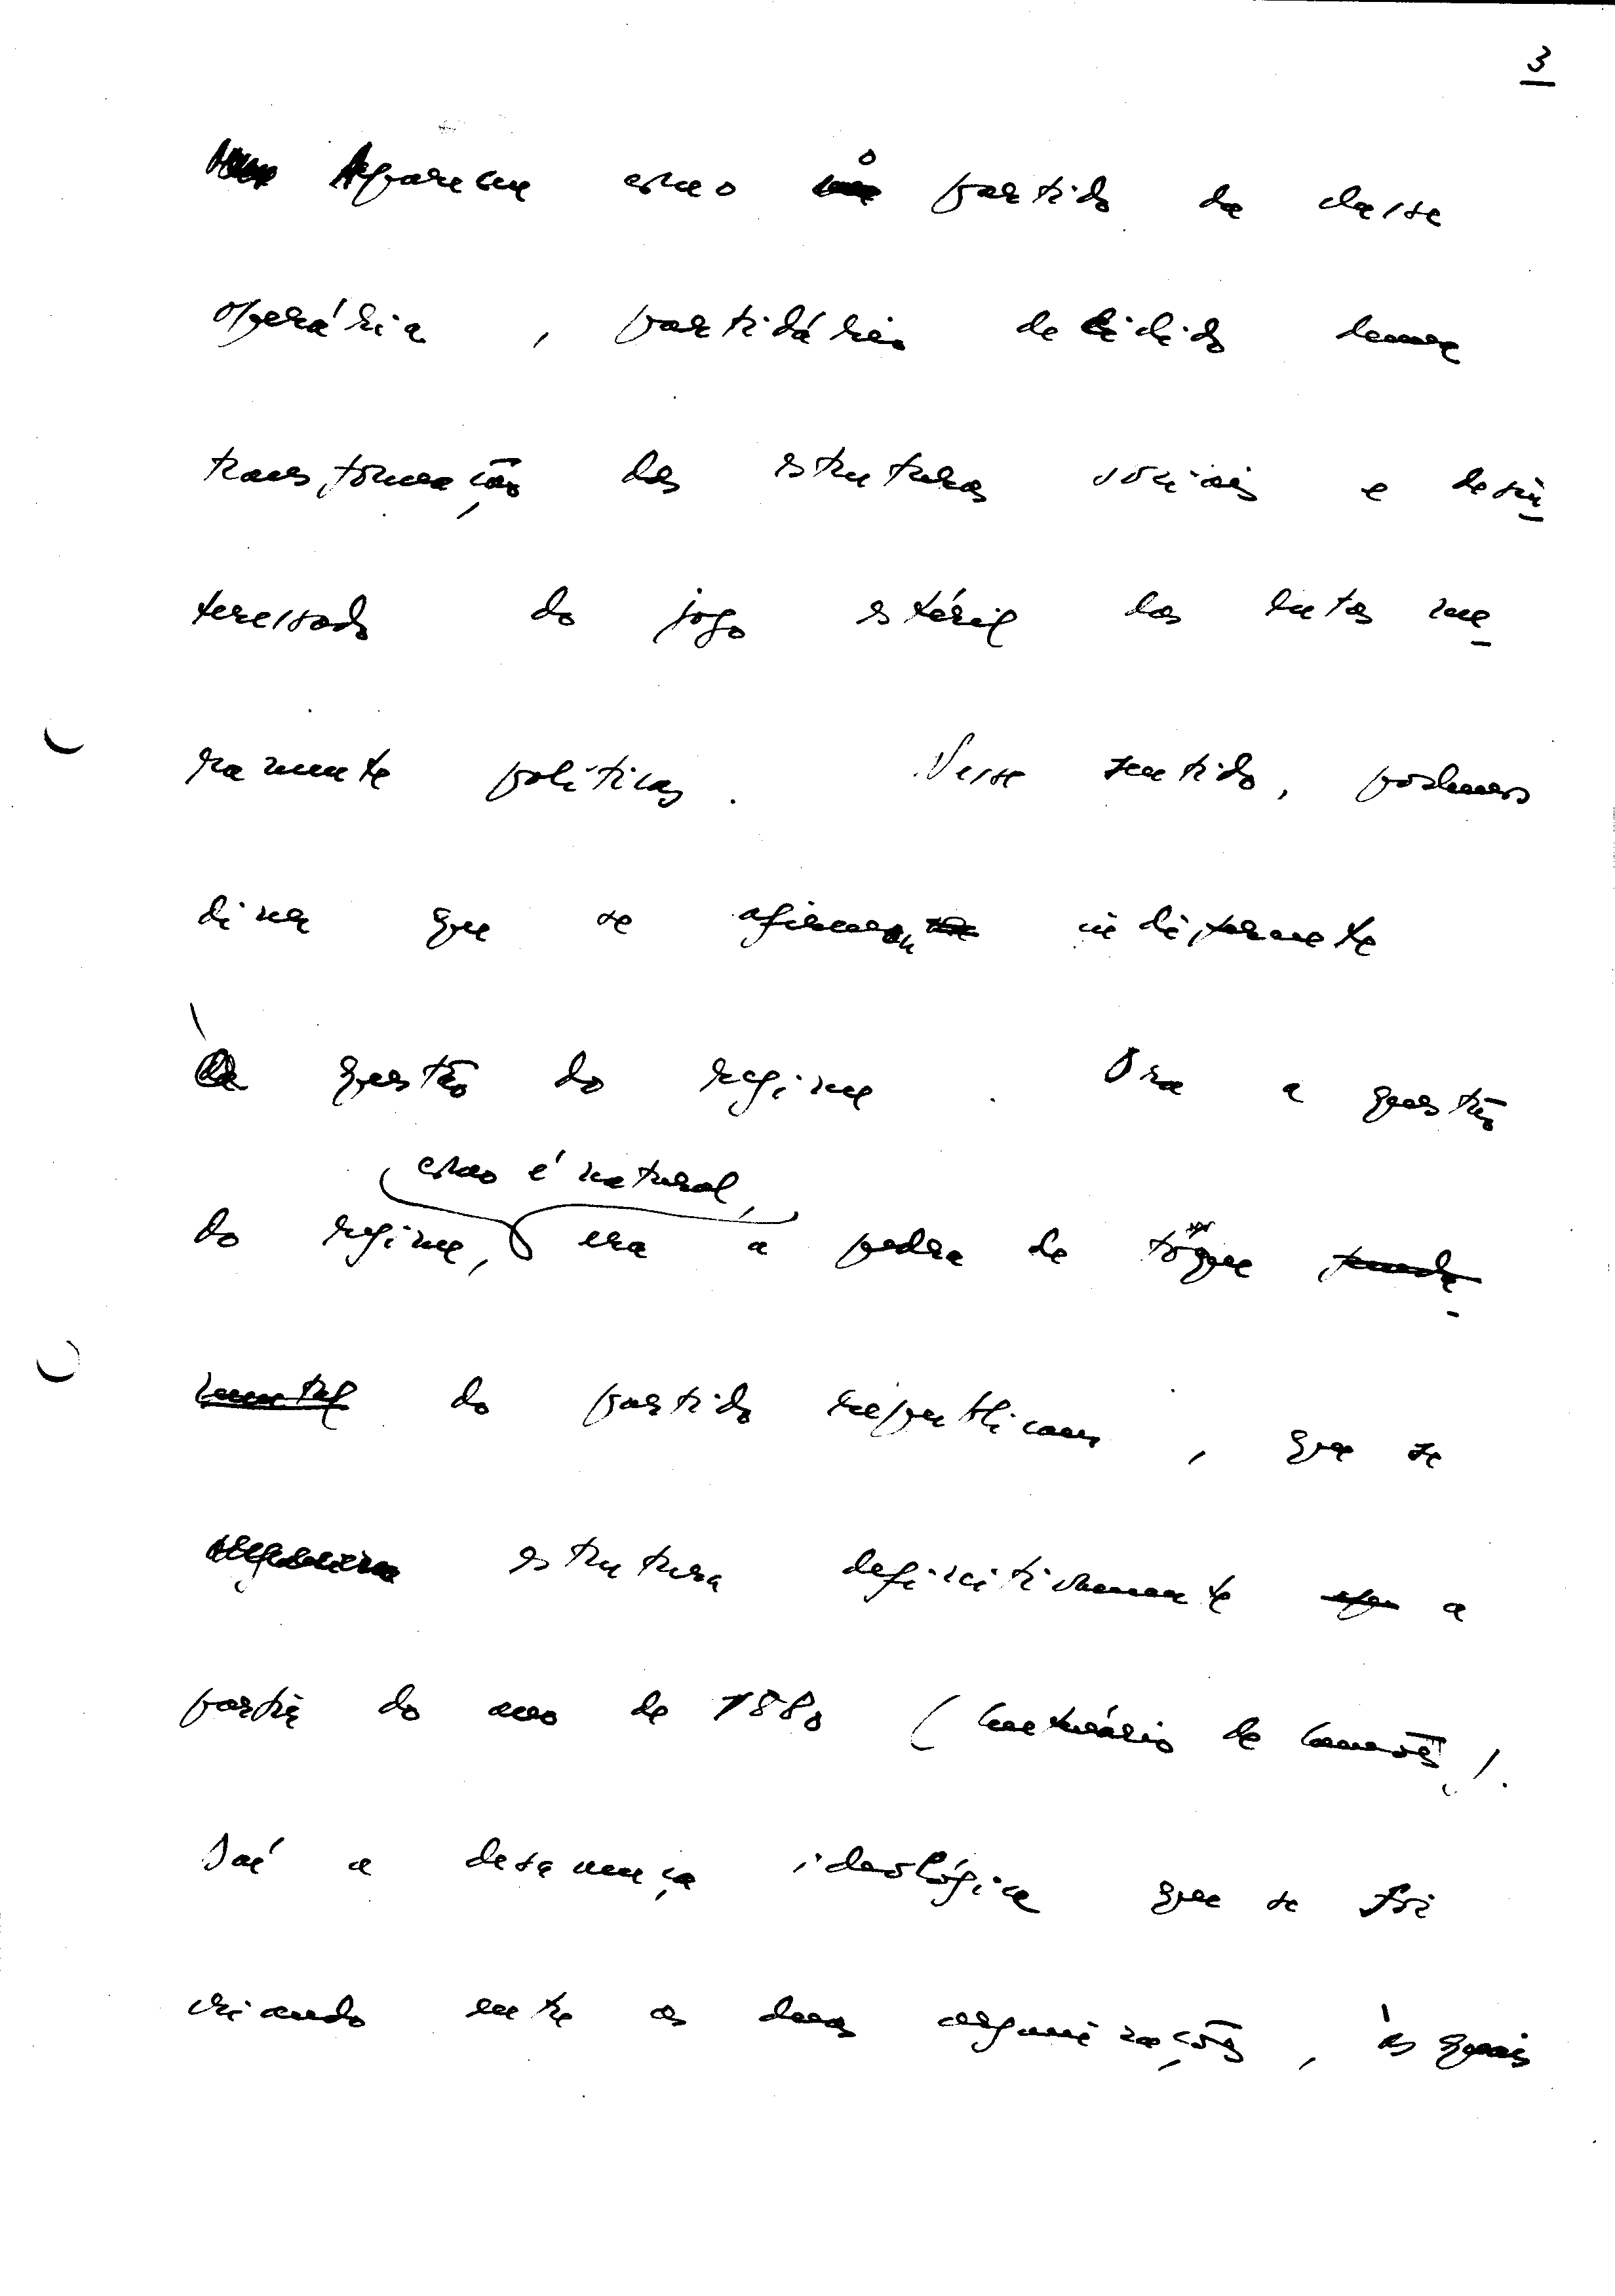 3
Aparecem como o partido da classe
operária , partidário decidido duma
transformação das estruturas sociais e desin
teressado do jogo estéril das lutas me
ramente políticas . Nesse sentido, podemos
dizer que se afirmou indiferente
à questão do regime . Ora a questão
como é natural,
do regime, era a pedra de toque funda
mental do partido republicano , que se
estrutura definitivamente a
partir do ano de 1880 (Centenário de Camões).
Daí a desavença ideológica que se foi
criando entre as duas organizações , às quais